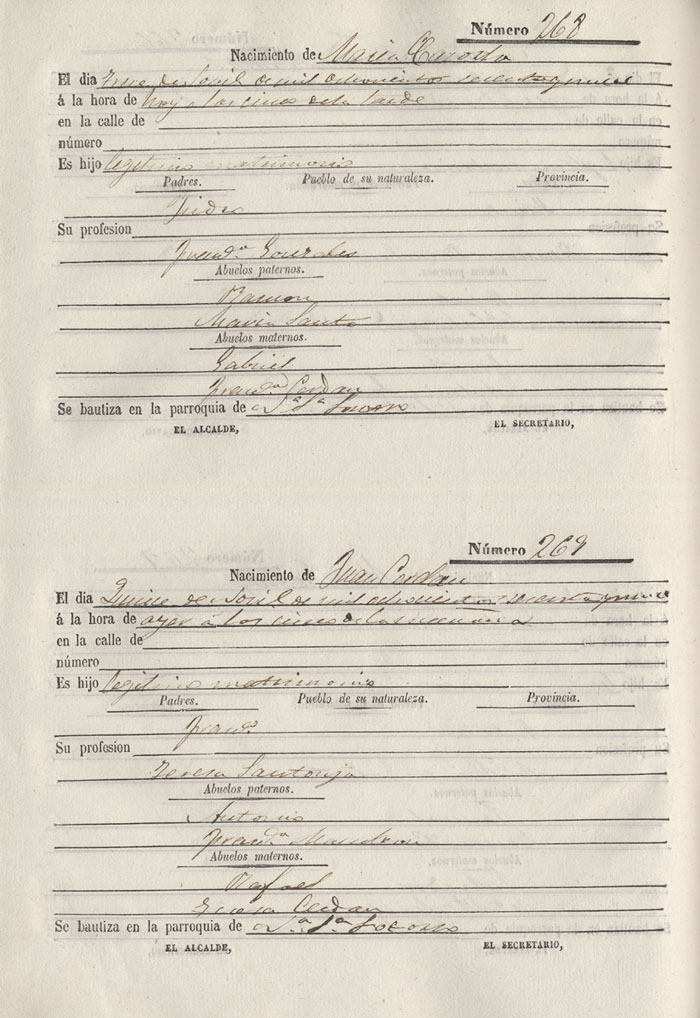 Número 268
Nacimiento de Maria
El dia Trece de Abril de mil ochocientos sesenta y nueve
á la hora de hoy a las cinco de la tarde
en la calle de
número
Es hijo legitimo matrimonio
Padres. Pueblo de su naturaleza. Provincia.
Su profesion
Franca. Gonzales
Abuelos paternos.
Ramon
Maria Santo
Abuelos maternos.
Gabriel
Franca. Cerdan
Se bautiza en la parroquia de Socorro
EL ALCALDE, EL SECRETARIO,
Número 269
Nacimiento de Juan Cerdan
El dia Quince de Abril de mil ochocientos sesenta y nueve
á la hora de ayer á las cinco de la mañana
en la calle de
número
Es hijo legitimo matrimonio
Padres. Pueblo de su naturaleza. Provincia.
Franco.
Su profesion
Teresa Santonja
Abuelos paternos.
Antonio
Franca.
Abuelos maternos.
Rafael
Teresa Cerdan
Se bautiza en la parroquia de Socorro
EL ALCALDE, EL SECRETARIO,